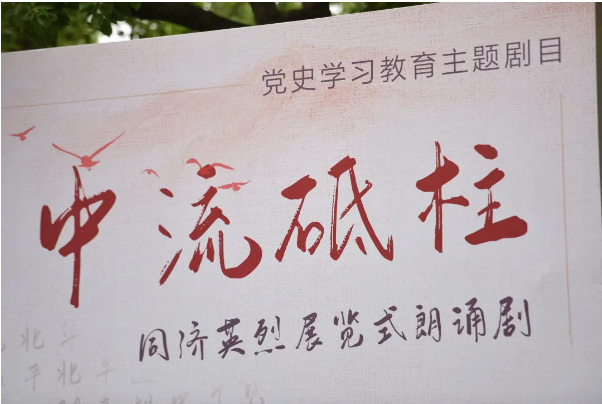 党史学习教育主题剧目
中流砥柱
同济英烈展览式朗诵剧
北华
平北平